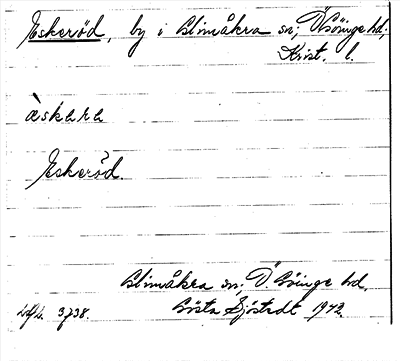 Eskeröd, by i Glimåkra sn; Ö. Göinge hd;
Krist. l.
àskara
Eskeröd.
Glimåkra sn; Ö. Göinge hd.
Gösta Sjöstedt 1942.